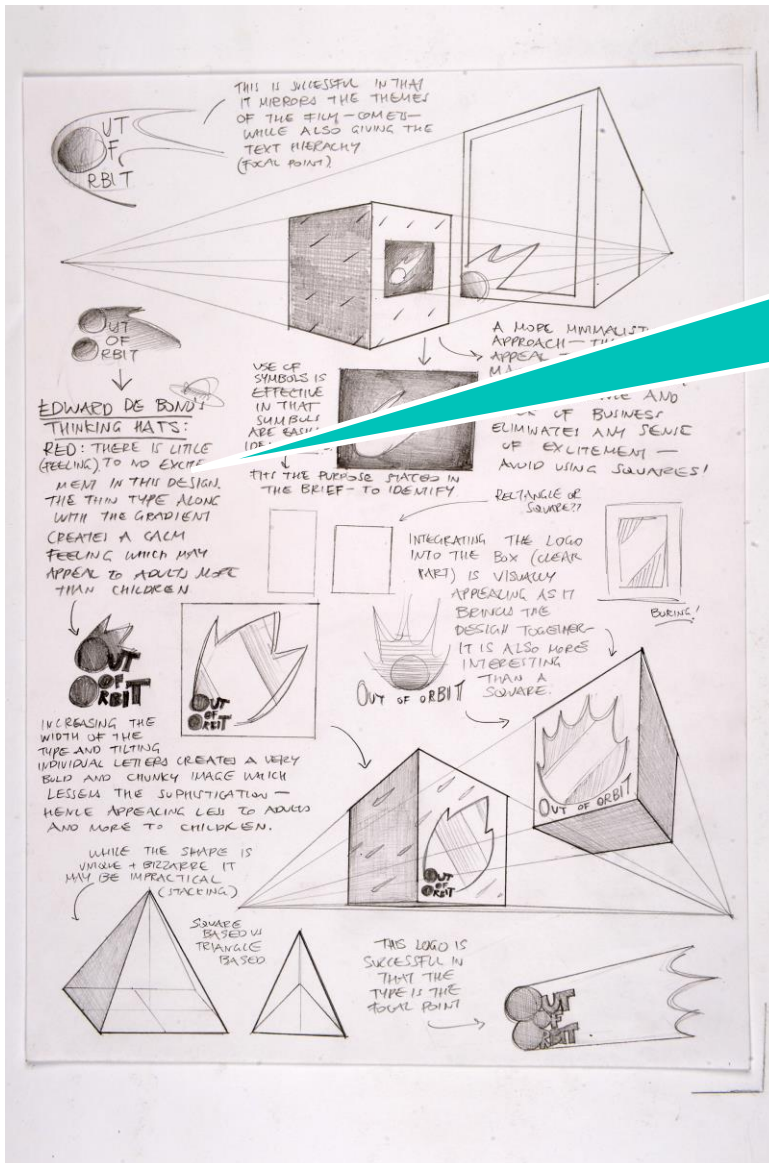 THIS IS SUCCESSFUL IN THAT
IT MIRRORS THE THEMES
OF THE FILM - COMETS -
WHILE ALSO GIVING THE
TEXT HIERACHY
(FOCAL POINT)
OUT
OF
ORBIT
OUT
OF
ORBIT
EDWARD DE BONO'S
THINKING HATS:
RED: THERE IS LITTLE
(FEELING) TO NO EXCITE-
MENT IN THIS DESIGN.
THE THIN TYPE ALONG
WITH THE GRADIENT
CREATES A CALM
FEELING WHICH MAY
APPEAL TO ADULTS MORE
THAN CHILDREN
USE OF
SYMBOLS IS
EFFECTIVE
IN THAT
SYMBOLS
ARE
FITS THE PURPOSE STATED IN
THE BRIEF - TO IDENTIFY
A MORE MINIMALIST
APPROACH -
APPEAL
AND
OF BUSINESS
ELIMINATES ANY SENSE
OF EXCITEMENT -
AVOID USING SQUARES!
RECTANGLE OR
SQUARE??
INTEGRATING THE LOGO
INTO THE BOX (CLEAR
PART) IS VISUALLY
APPEALING AS IT
BRINGS THE
DESIGN TOGETHER -
IT IS ALSO MORE
INTERESTING
THAN A
SQUARE.
BORING!
OUT
OF
ORBIT
OUT
OF
ORBIT
OUT OF ORBIT
OUT OF ORBIT
INCREASING THE
WIDTH OF THE
TYPE AND TILTING
INDIVIDUAL LETTERS CREATES A VERY
BOLD AND CHUNKY IMAGE WHICH
LESSENS THE SOPHISTICATION -
HENCE APPEALING LESS TO ADULTS
AND MORE TO CHILDREN.
OUT
OF
ORBIT
WHILE THE SHAPE IS
UNIQUE + BIZZARRE IT
MAY BE IMPRACTICAL
(STACKING)
SQUARE
BASED VS
TRIANGLE
BASED
THIS LOGO IS
SUCCESSFUL IN
THAT THE
TYPE IS THE
FOCAL POINT
OUT
OF
ORBIT